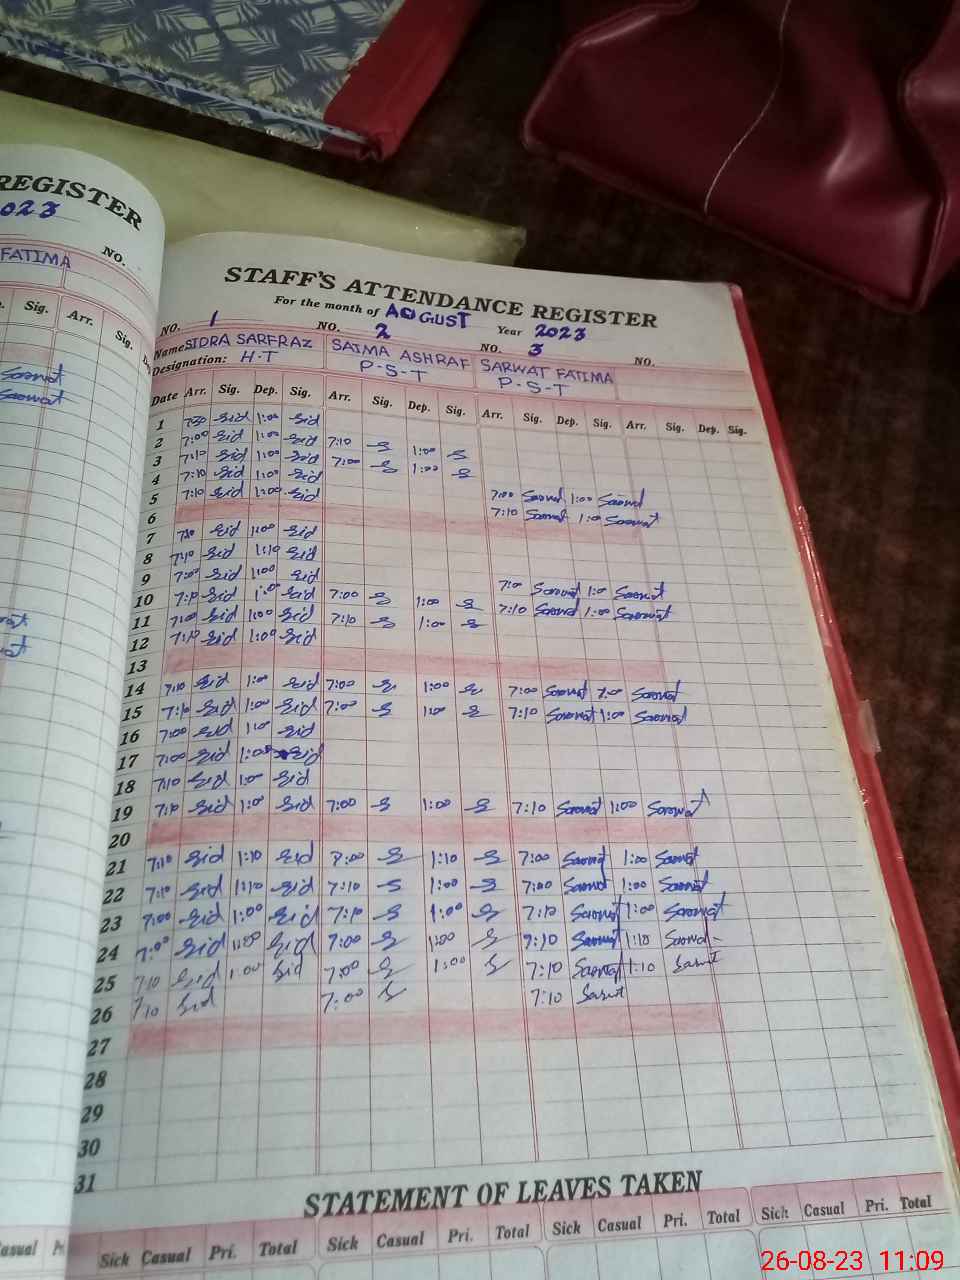 REGISTER
2023
NO.
FATIMA
Sig. Arr. Sig.
STAFF'S ATTENDANCE REGISTER
For the month of AUGUST Year 2023
NO. 1 NO. 2 NO. 3 NO.
Name SIDRA SARFRAZ SAIMA ASHRAF SARWAT FATIMA
Designation: H-T P-S-T P-S-T
Date Arr. Sig. Dep. Sig. Arr. Sig. Dep. Sig. Arr. Sig. Dep. Sig. Arr. Sig. Dep. Sig.
1 Sid 1:00 Sid
2 7:00 Sid 1:00 Sid 7:10 1:00
3 7:10 Sid 1:00 Sid 7:00 1:00
4 7:10 Sid 1:00 Sid
5 7:10 Sid 1:00 Sid 7:00 Sarwat 1:00 Sarwat
6 7:10 Sarwat 1:00 Sarwat
7 Sid 1:00 Sid
8 7:10 Sid 1:10 Sid
9 7:00 Sid 1:00 Sid 7:00 Sarwat 1:00 Sarwat
10 7:10 Sid 1:00 Sid 7:00 1:00 7:10 Sarwat 1:00 Sarwat
11 7:00 Sid 1:00 Sid 7:10 1:00
12 7:10 Sid 1:00 Sid
13
14 7:10 Sid 1:00 Sid 7:00 1:00 7:00 Sarwat 7:00 Sarwat
15 7:10 Sid 1:00 Sid 7:00 1:00 7:10 Sarwat 1:00 Sarwat
16 7:00 Sid 1:00 Sid
17 7:00 Sid 1:00 Sid
18 7:10 Sid 1:00 Sid
19 7:10 Sid 1:00 Sid 7:00 1:00 7:10 Sarwat 1:00 Sarwat
20
21 7:10 Sid 1:10 Sid 7:00 1:10 7:00 Sarwat 1:00 Sarwat
22 7:10 Sid 1:10 Sid 7:10 1:00 7:00 Sarwat 1:00 Sarwat
23 7:00 Sid 1:00 Sid 7:10 1:00 7:10 Sarwat 1:00 Sarwat
24 7:00 Sid 1:00 Sid 7:00 1:00 7:10 Sarwat 1:10 Sarwat
25 7:10 Sid 1:00 Sid 7:00 1:00 7:10 Sarwat 1:10 Sarwat
26 7:10 Sid 7:00 7:10 Sarwat
27
28
29
30
31
STATEMENT OF LEAVES TAKEN
Casual Sick Casual Pri. Total Sick Casual Pri. Total Sick Casual Pri. Total Sick Casual Pri. Total
26-08-23 11:09